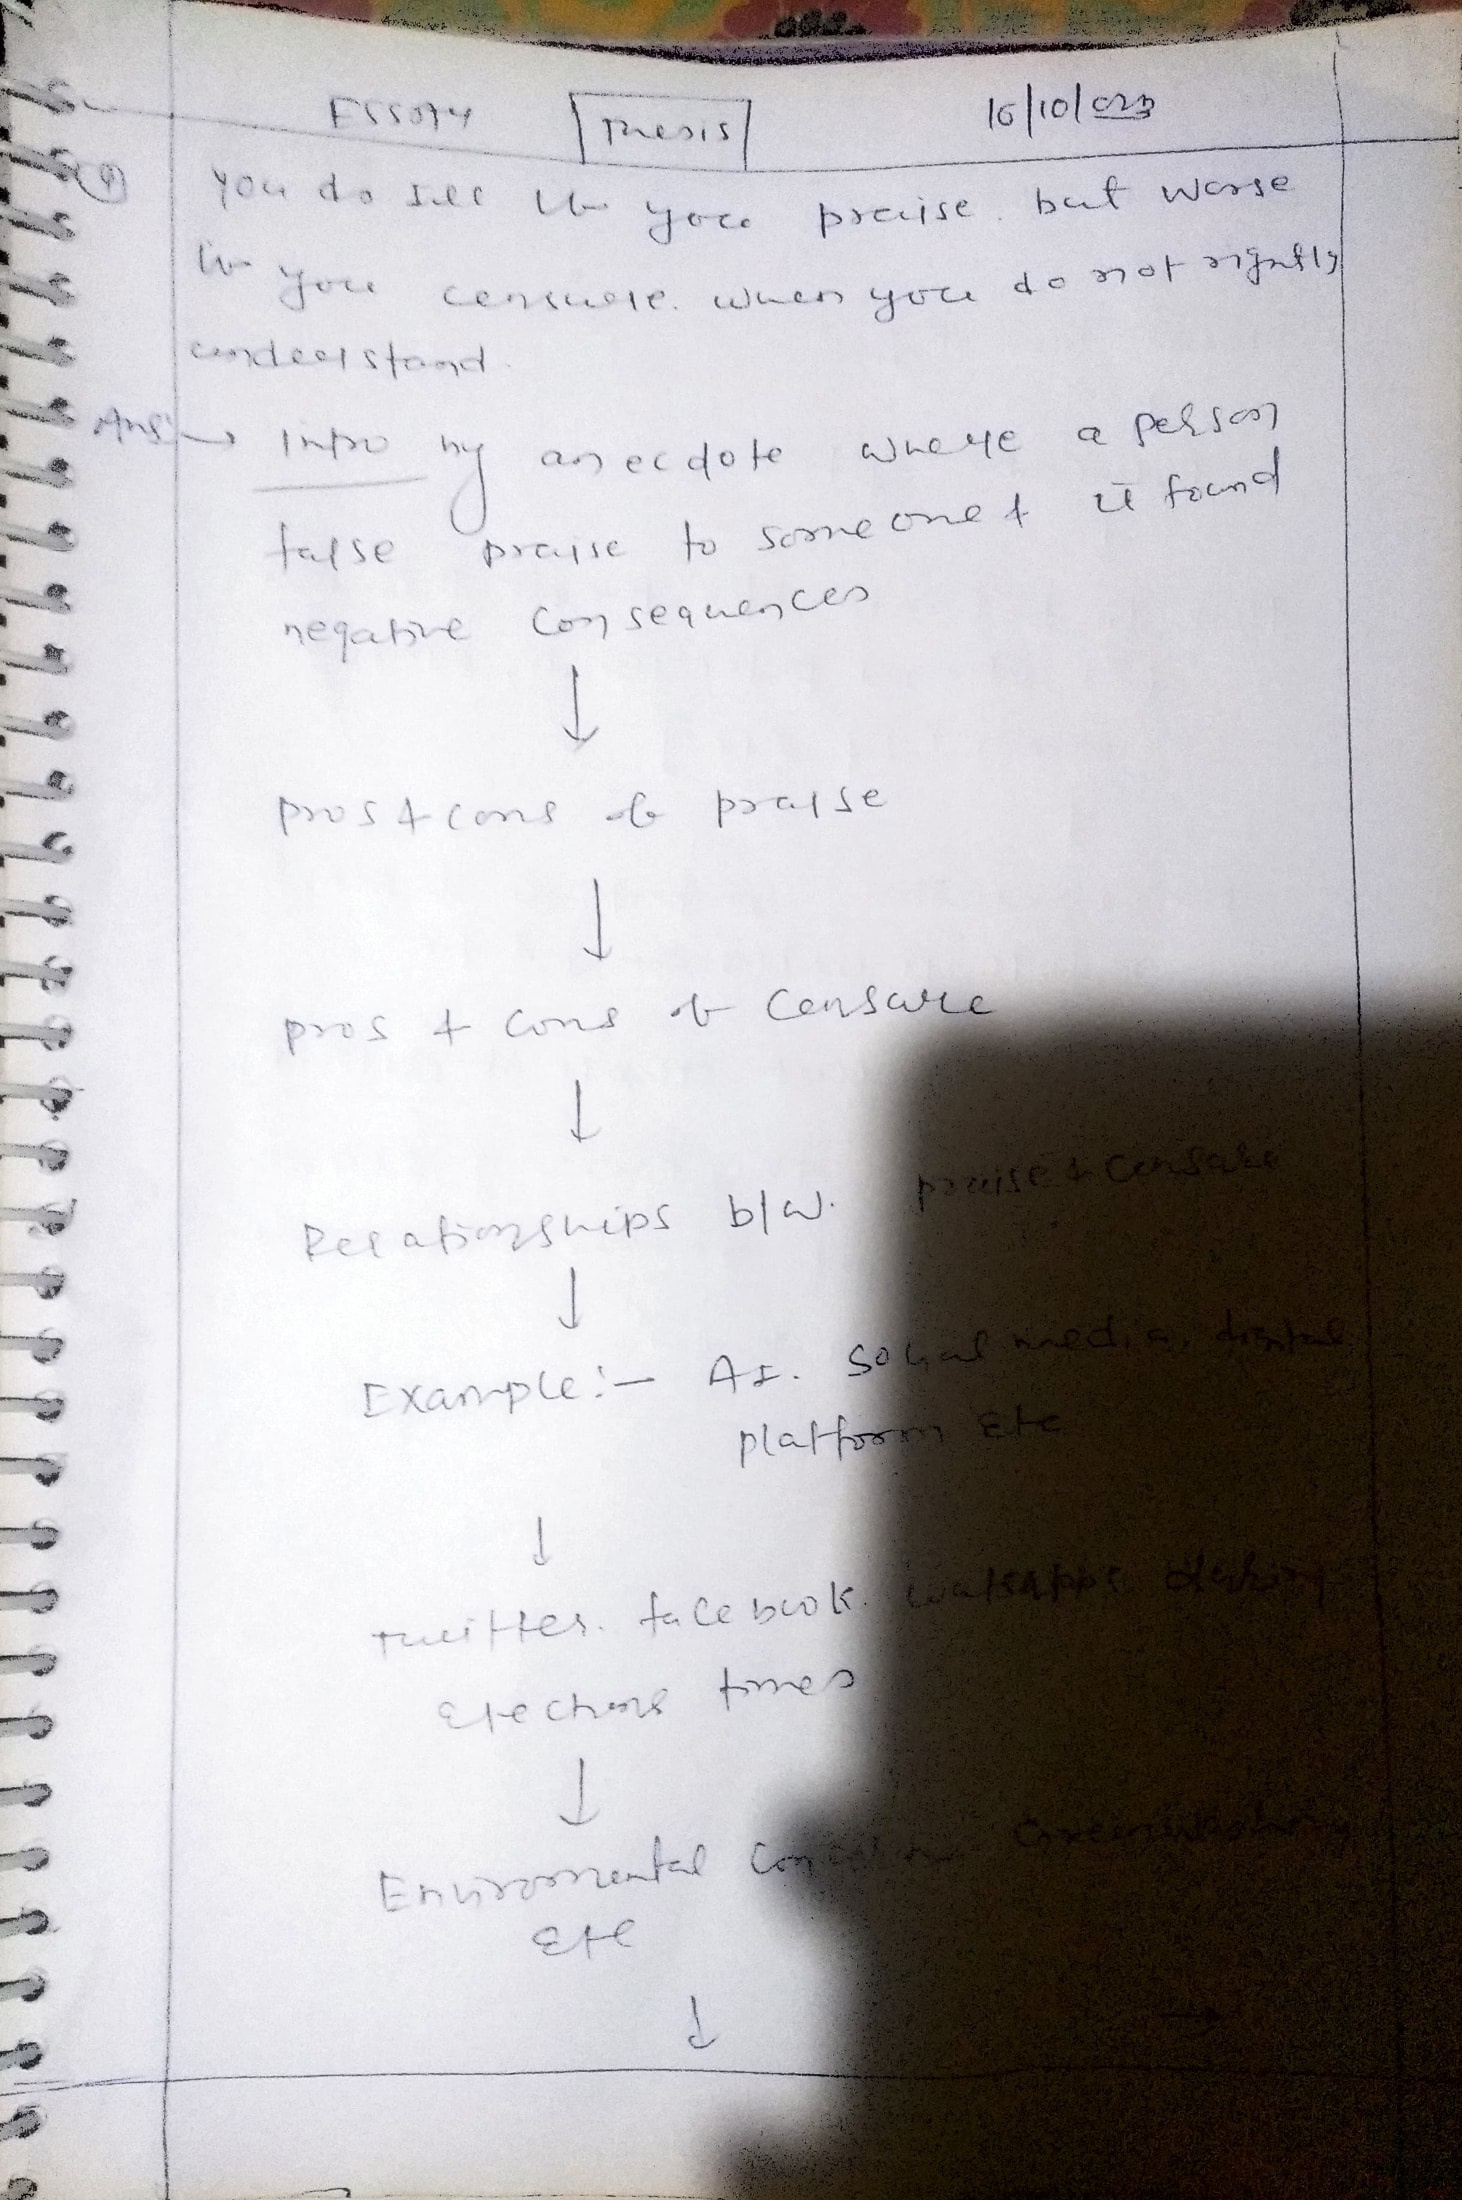 ESSAY Thesis 16/10/023
Q) you do ill if you praise. but worse
if you censure. when you do not rightly
understand.
Ans → Intro by anecdote where a person
false praise to someone & it found
negative consequences
↓
pros & cons of praise
↓
pros & cons of censure
↓
Relationships b/w. praise & censure
↓
Example:- AI. Social media, digital
platform etc
↓
Twitter. facebook. whatsapps during
elections times
↓
Environmental Greenwashing
etc
↓